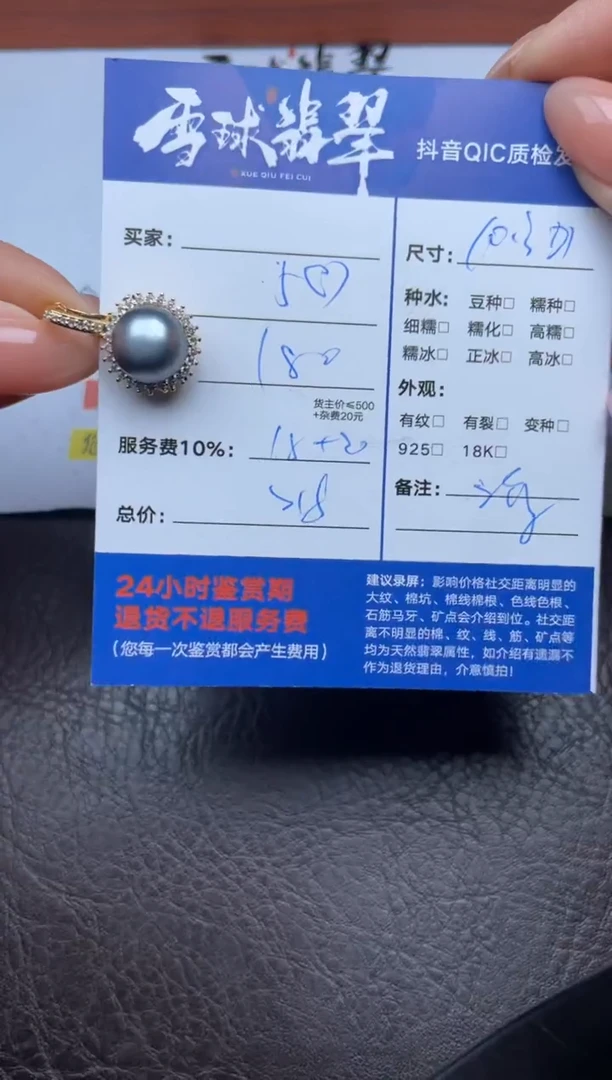 雪球翡翠
XUE QIU FEI CUI
抖音QIC质检发
买家：
180
货主价≤500
+杂费20元
服务费10%： 18+20
总价： 218
24小时鉴赏期
退货不退服务费
（您每一次鉴赏都会产生费用）
尺寸：
种水： 豆种□ 糯种□
细糯□ 糯化□ 高糯□
糯冰□ 正冰□ 高冰□
外观：
有纹□ 有裂□ 变种□
925□ 18K□
备注：
建议录屏：影响价格社交距离明显的
大纹、棉坑、棉线棉根、色线色根、
石筋马牙、矿点会介绍到位。社交距
离不明显的棉、纹、线、筋、矿点等
均为天然翡翠属性，如介绍有遗漏不
作为退货理由，介意慎拍！